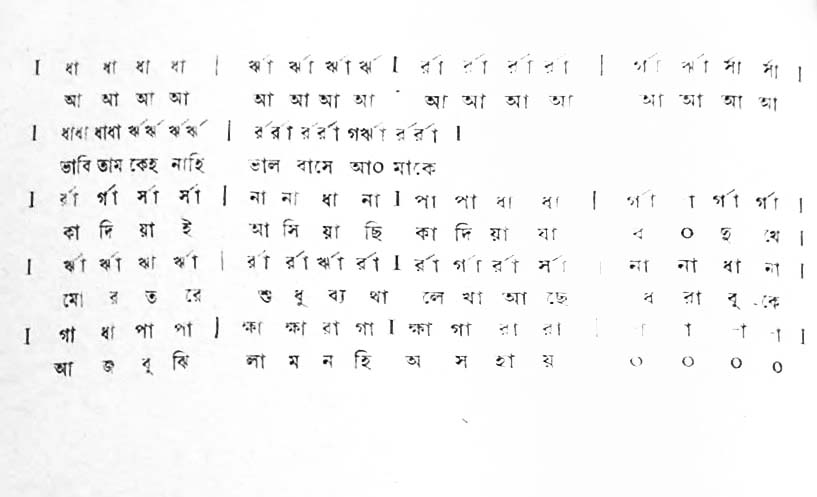 I ধা ধা ধা ধা | র্ঝা র্ঝা র্ঝা র্ঝ I র্রা র্রা র্রা র্রা | র্গা র্ঝা র্সা র্সা |
আ আ আ আ আ আ আ আ আ আ আ আ আ আ আ আ
I ধাধা ধাধা র্ঝর্ঝ র্ঝর্ঝ | র্রর্রা র্রর্রা র্রর্রা |
ভাবি তাম কেহ নাহি ভাল বাসে আ০ মাকে
I র্রা র্গা র্সা র্সা | না না ধা না I পা পা ধা ধা | র্গা া র্গা র্গা |
কা দিয়া ই আ সি য়া ছি কা দি য়া যা ব ০ হু খে |
I র্ঝা র্ঝা ঝা র্ঝা | র্রা র্রা র্ঝা র্রা I র্রা র্গা র্রা র্সা | না না ধা না |
মো র ত রে শু ধু ব্য থা লে খা আ ছে ধ রা বু কে
I গা ধা পা পা | ক্ষা ক্ষা রা গা I ক্ষা গা রা রা | া া া া I
আ জ বু ঝি লা ম ন হি অ স হা য় ০ ০ ০ ০